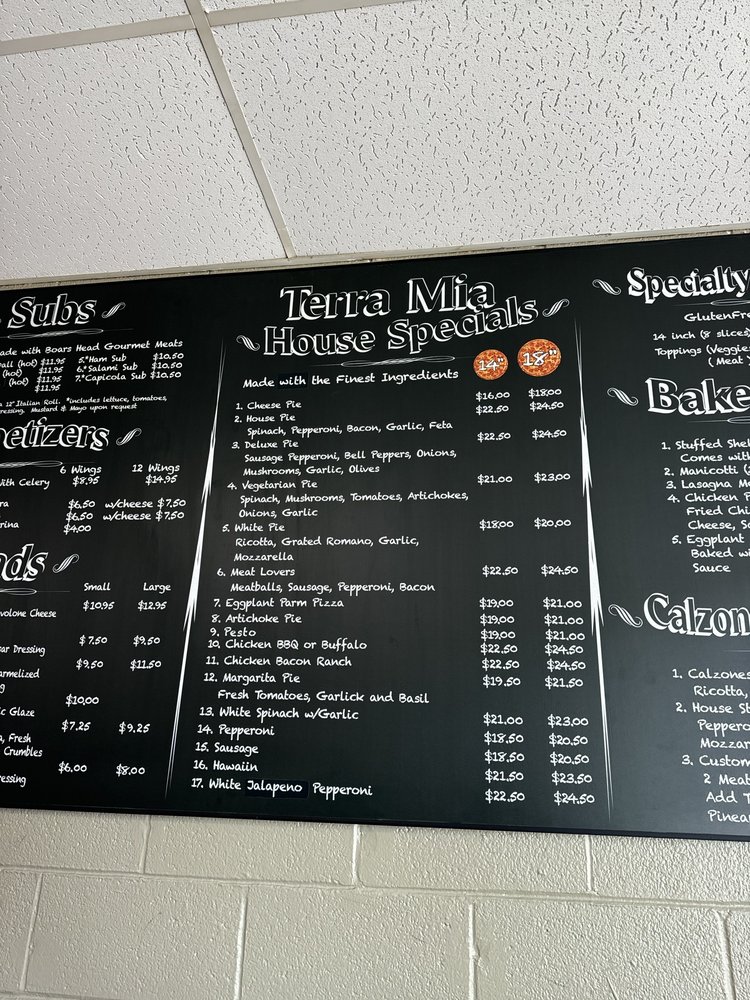 Subs
ade with Boars Head Gourmet Meats
all (hot) $11.95
(hot) $11.95
(hot) $11.95
$11.95
5.*Ham Sub $10.50
6.*Salami Sub $10.50
7.*Capicola Sub $10.50
a 12" Italian Roll. *includes lettuce, tomatoes,
ressing, Mustard & Mayo upon request
etizers
6 Wings 12 Wings
with Celery $8.95 $14.95
ra $6.50 w/cheese $7.50
$6.50 w/cheese $7.50
rina $4.00
ds
Small Large
ovolone Cheese $10.95 $12.95
ar Dressing $7.50 $9.50
armelized $9.50 $11.50
g
$10.00
ic Glaze
a, Fresh $7.25 $9.25
Crumbles
$6.00 $8.00
ressing
Terra Mia
House Specials
14" 18"
Made with the Finest Ingredients
1. Cheese Pie $16.00 $18.00
2. House Pie $22.50 $24.50
Spinach, Pepperoni, Bacon, Garlic, Feta
3. Deluxe Pie $22.50 $24.50
Sausage Pepperoni, Bell Peppers, Onions,
Mushrooms, Garlic, Olives
4. Vegetarian Pie $21.00 $23.00
Spinach, Mushrooms, Tomatoes, Artichokes,
Onions, Garlic
5. White Pie $18.00 $20.00
Ricotta, Grated Romano, Garlic,
Mozzarella
6. Meat Lovers $22.50 $24.50
Meatballs, Sausage, Pepperoni, Bacon
7. Eggplant Parm Pizza $19.00 $21.00
8. Artichoke Pie $19.00 $21.00
9. Pesto $19.00 $21.00
10. Chicken BBQ or Buffalo $22.50 $24.50
11. Chicken Bacon Ranch $22.50 $24.50
12. Margarita Pie $19.50 $21.50
Fresh Tomatoes, Garlick and Basil
13. White Spinach w/Garlic $21.00 $23.00
14. Pepperoni $18.50 $20.50
15. Sausage $18.50 $20.50
16. Hawaiin $21.50 $23.50
17. White Jalapeno Pepperoni $22.50 $24.50
Specialty
GlutenFre
14 inch (8 slices
Toppings (Veggie
( Meat
Bake
1. Stuffed Shel
Comes with
2. Manicotti (
3. Lasagna Me
4. Chicken
Fried Chi
Cheese, S
5. Eggplant
Baked wi
Sauce
Calzon
1. Calzones
Ricotta,
2. House St
Pepperon
Mozzar
3. Custom
2 Meat
Add T
Pinea